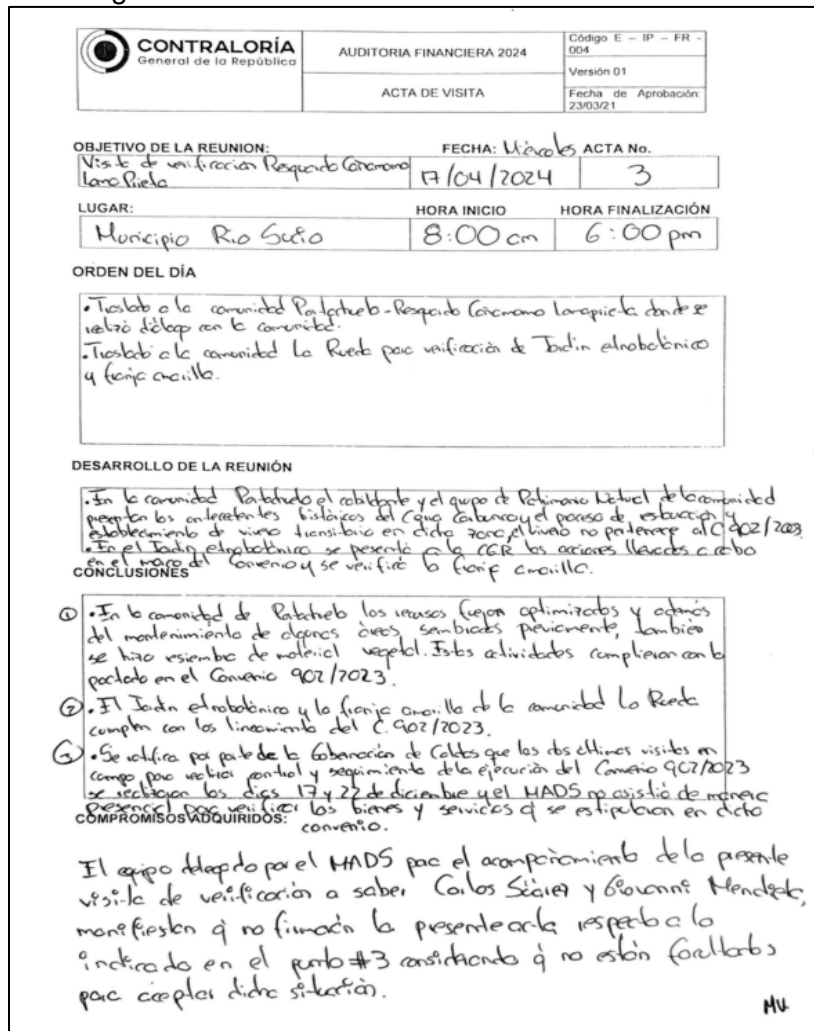 CONTRALORÍA
General de la República
AUDITORIA FINANCIERA 2024
ACTA DE VISITA
Código E – IP – FR -
004
Versión 01
Fecha de Aprobación:
23/03/21
OBJETIVO DE LA REUNION:
Visita de verificación Resguardo Cañamomo
Lomo Prieta
FECHA: Miércoles
17/04/2024
ACTA No.
3
LUGAR:
Municipio Rio Sucio
HORA INICIO
8:00 am
HORA FINALIZACIÓN
6:00 pm
ORDEN DEL DÍA
• Traslado a la comunidad - Resguardo Cañamomo Lomaprieta donde se
realizó diálogo con la comunidad.
• Traslado a la comunidad La Rueda para verificación de Jardin etnobotánico
y franja amarilla.
DESARROLLO DE LA REUNIÓN
• En la comunidad el cabildante y el grupo de Patrimonio Natural de la comunidad
presentan los antecedentes históricos del y el proceso de restauración y
establecimiento de vivero transitorio en dicha zona, el vivero no pertenece al C 902/2023.
• En el Jardin etnobotánico se presentó a la CGR las acciones llevadas a cabo
en el marco del Convenio y se verificó la franja amarilla.
CONCLUSIONES
① • En la comunidad de los recursos fueron optimizados y además
del mantenimiento de algunas áreas sembradas previamente, también
se hizo resiembra de material vegetal. Estas actividades cumplieron con lo
pactado en el Convenio 902/2023.
② • El Jardin etnobotánico y la franja amarilla de la comunidad La Rueda
cumplen con los lineamientos del C. 902/2023.
③ • Se ratifica por parte de la Gobernación de Caldas que las dos últimas visitas en
campo para realizar control y seguimiento de la ejecución del Convenio 902/2023
se realizaron los días 17 y 22 de diciembre y el MADS no asistió de manera
presencial para verificar los bienes y servicios q se estipularon en dicho
convenio.
COMPROMISOS ADQUIRIDOS:
El equipo delegado por el MADS para el acompañamiento de la presente
visita de verificación a saber Carlos Suárez y Giovanni
manifiestan q no firmarán la presente acta respecto a lo
indicado en el punto #3 considerando q no están facultados
para aceptar dicha situación.
MV